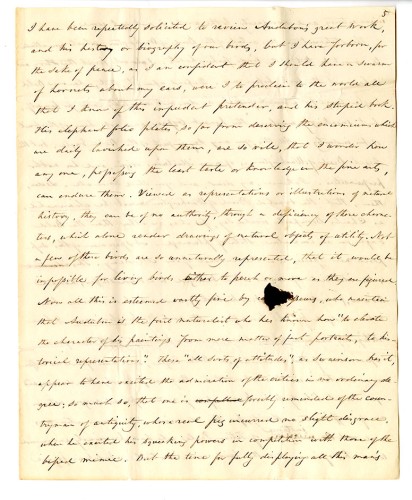 5
I have been repeatedly solicited to review Audubon's great work,
and his history or biography of our birds, but I have forborn, for
the sake of peace, as I am confident that I should have a swarm
of hornets about my ears, were I to proclaim to the world all
that I know of this impudent pretender, and his stupid book.
His elephant folio plates, so far from deserving the encomiums which
are daily lavished upon them, are so vile, that I wonder how
any one, possessing the least taste or knowledge in the fine arts,
can endure them. Viewed as representations or illustrations of natural
history, they can be of no authority, through a deficiency of those charac-
ters, which alone render drawings of natural objects of utility. Not
a few of their birds are so unnaturally represented, that it would be
impossible for living birds either to perch or move as they are figured.
Now all this is esteemed vastly fine by who maintain
that Audubon is the first naturalist who has known how "to elevate
the character of his paintings from mere matter of fact portraits, to his-
torical representations". These "all sorts of attitudes", as Swainson has it,
appear to have excited the admiration of the critics in no ordinary de-
gree; so much so, that one is forcibly reminded of the coun-
tryman of antiquity, whose real pig incurred no slight disgrace,
when he exerted his squeaking powers in competition with those of the
biped mimic. But the time for fully displaying all this man's